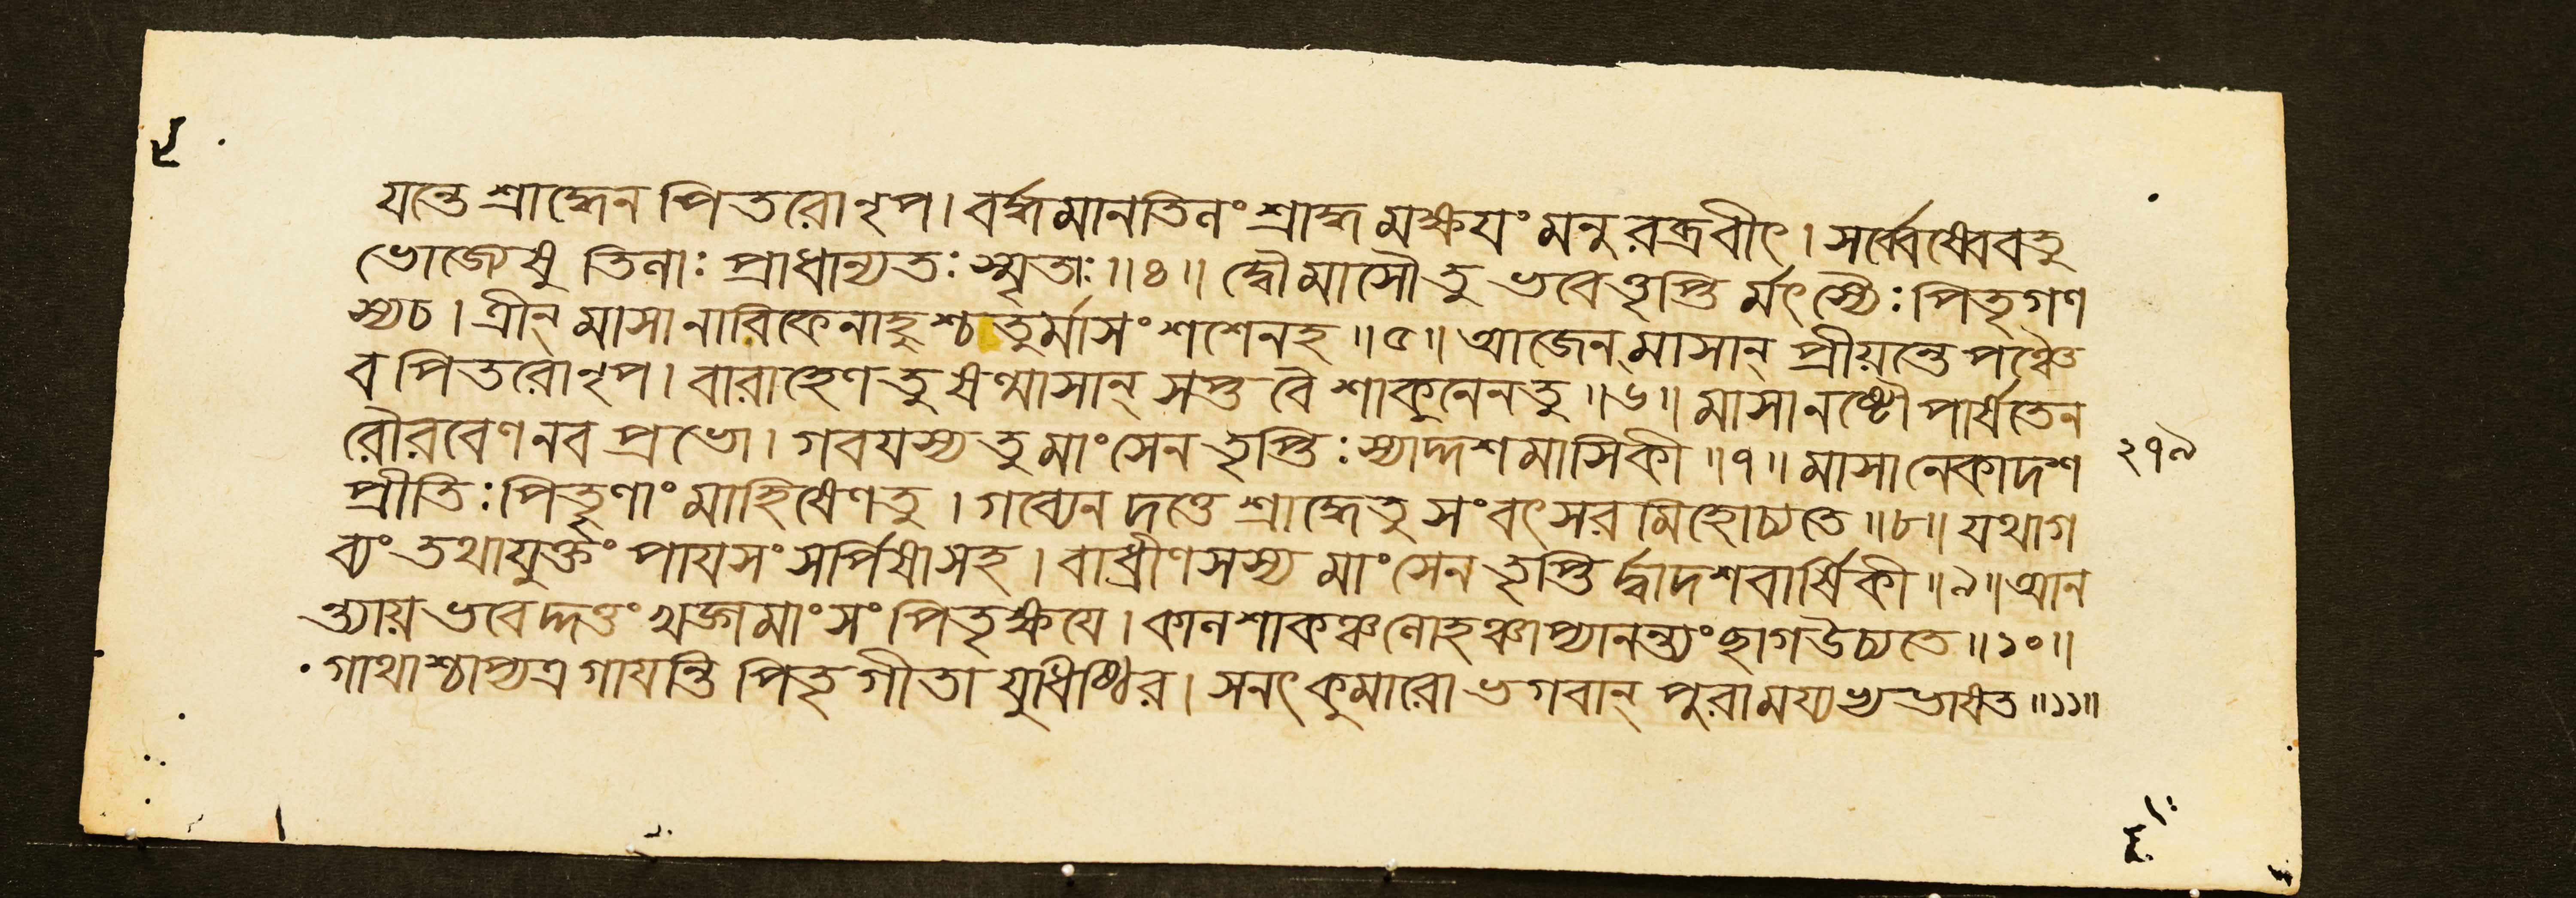 যন্তে শ্রাদ্ধেন পিতরো নৃপ। বর্দ্ধমানতিলং শ্রাদ্ধমক্ষযং মনুরব্রবীৎ। সর্ব্বেষ্বেবতু
ভোজ্যেষু তিলাঃ প্রাধান্যতঃ স্মৃতাঃ॥৪॥ দ্বৌ মাসৌ তু ভবেত্তৃপ্তির্মৎস্যৈঃ পিতৃগণ
স্যচ। ত্রীন্ মাসানাবিকেনাহুশ্চাতুর্মাসং শশেনহ॥৫॥ আজেন মাসান্ প্রীয়ন্তে পঞ্চৈ
ব পিতরো নৃপ। বারাহেণ তু ষণ্মাসান্ সপ্ত বৈ শাকুনেন তু॥৬॥ মাসানষ্টৌ পার্ষতেন
রৌরবেণ নব প্রভো। গবযস্য তু মাংসেন তৃপ্তিঃ স্যাদ্দশমাসিকী॥৭॥ মাসানেকাদশ
২৭৯
প্রীতিঃ পিতৄণাং মাহিষেণ তু। গব্যেন দত্তে শ্রাদ্ধেতু সংবৎসরমিহোচ্যতে॥৮॥ যথাগ
ব্যং তথাযুক্তং পাযসং সর্পিষাসহ। বাধ্রীণসস্য মাংসেন তৃপ্তির্দ্বাদশবার্ষিকী॥৯॥ আন
ন্ত্যায় ভবেদ্দত্তং খড্গমাংসং পিতৃক্ষযে। কালশাকঞ্চ লোহঞ্চাপ্যানন্ত্যং ছাগউচ্যতে॥১০॥
গাথাশ্চাপ্যত্র গাযন্তি পিতৃগীতা যুধিষ্ঠির। সনৎকুমারো ভগবান্ পুরা ময্যভ্যভাষত॥১১॥